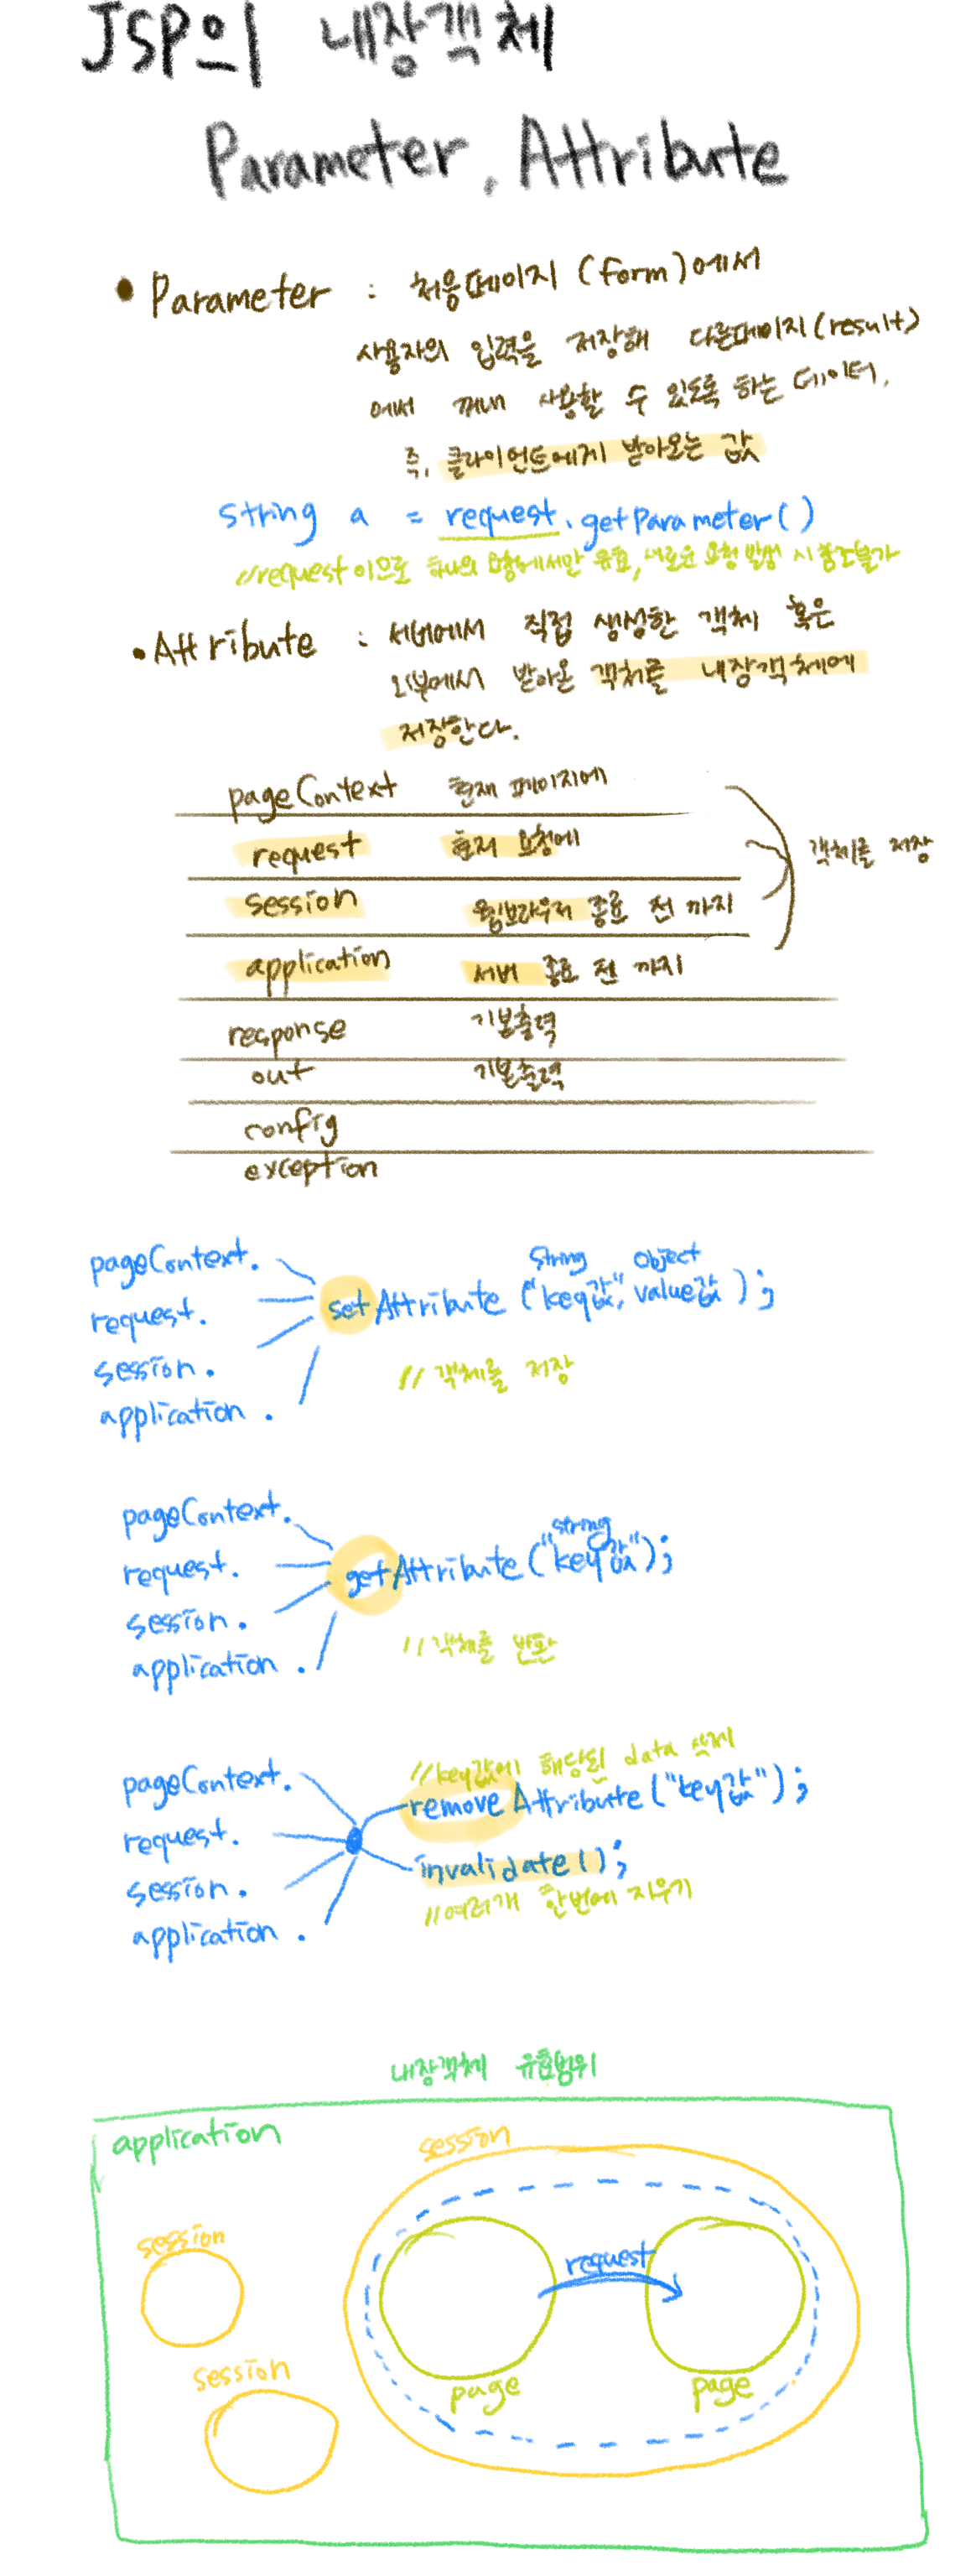 JSP의 내장객체
Parameter, Attribute
• Parameter : 처음페이지 (form)에서
사용자의 입력을 저장해 다른페이지(result)
에서 꺼내 사용할 수 있도록 하는 데이터.
즉, 클라이언트에게 받아오는 값
String a = request.getParameter()
//request 이므로 하나의 요청에서만 유효, 새로운 요청 발생 시 참조불가
• Attribute : 서버에서 직접 생성한 객체 혹은
외부에서 받아온 객체를 내장객체에
저장한다.
pageContext 현재 페이지에
request 현재 요청에
객체를 저장
session 웹브라우저 종료 전 까지
application 서버 종료 전 까지
response 기본출력
out 기본출력
config
exception
String Object
pageContext.
request.
session.
application.
setAttribute ("key값", value값 );
// 객체를 저장
pageContext.
request.
session.
application.
string
getAttribute ("key값");
// 객체를 반환
pageContext.
request.
session.
application.
//key값에 해당된 data 삭제
remove Attribute ("key값");
invalidate();
//여러개 한번에 지우기
내장객체 유효범위
application
session
session
request
session
page
page